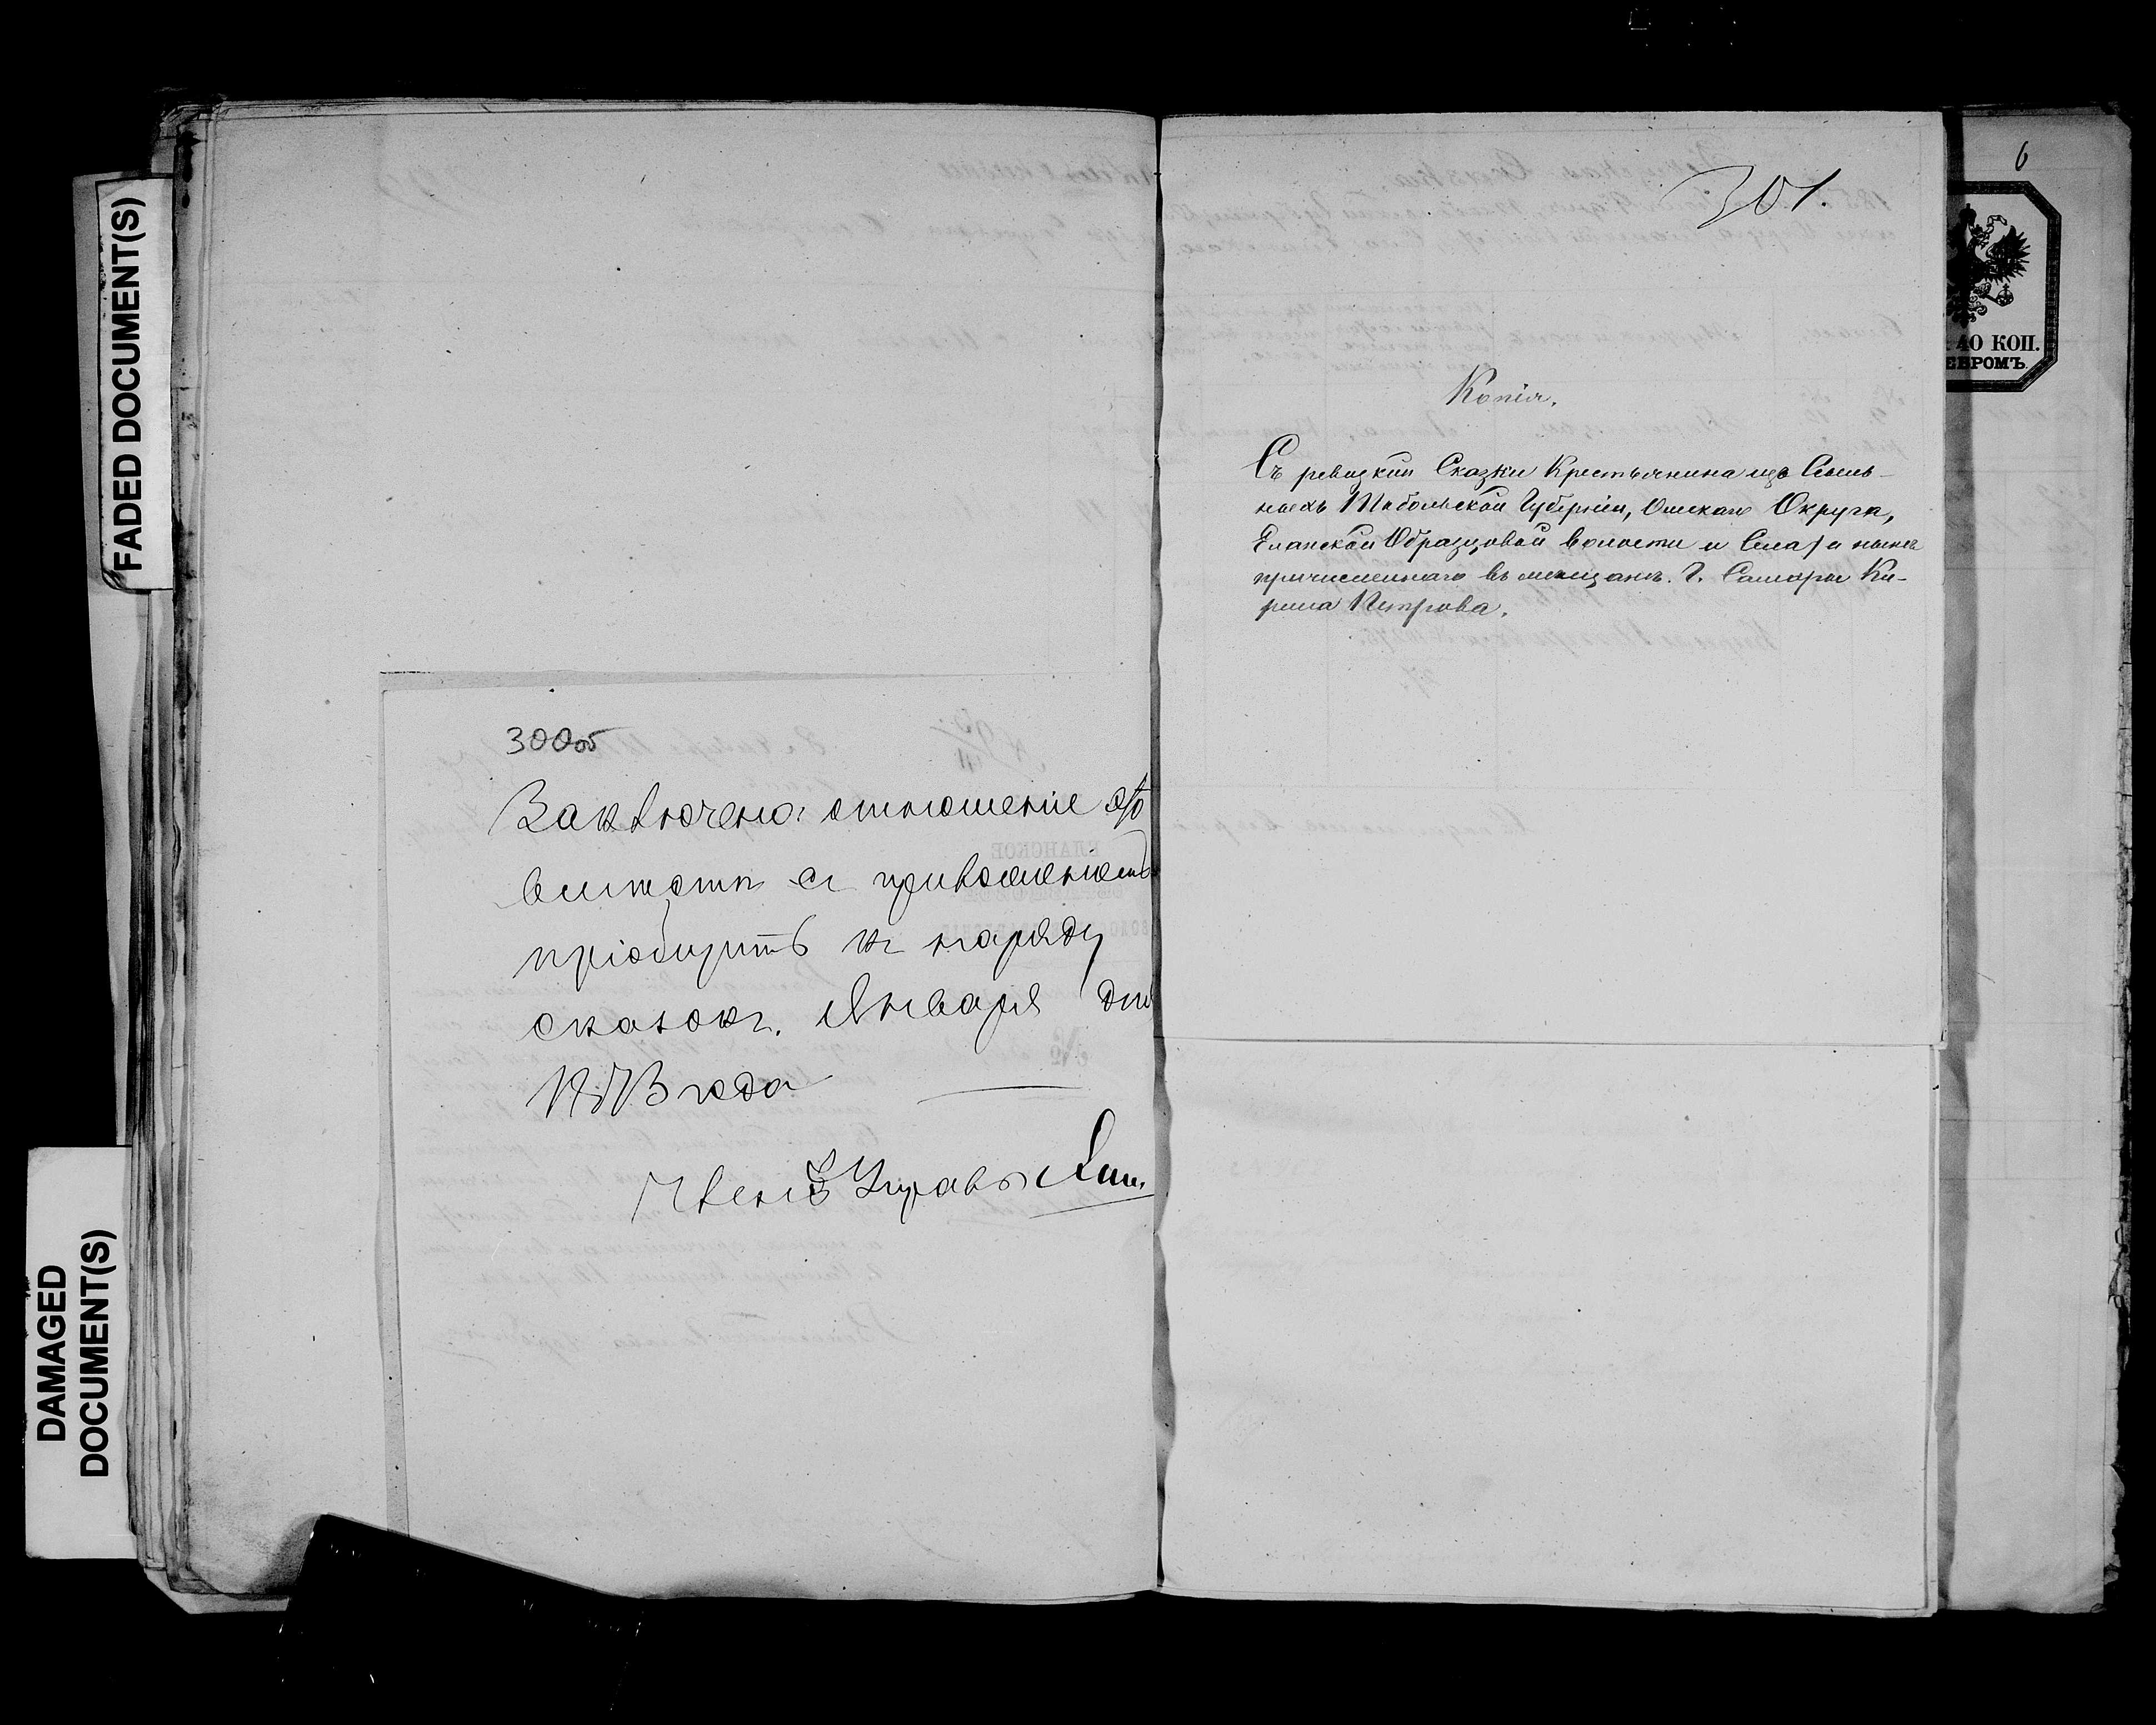 FADED DOCUMENT(S)
DAMAGED
DOCUMENT(S)
300об
Заключено: отношеніе это
вместѣ съ приложеніемъ
пріобщить къ наряду
сказокъ. Января дня
1873 года
Членъ Управы
301.
Копія.
Съ ревизкой Сказки Крестьянина изъ Ссыль-
ныхъ Тобольской Губерніи, Омскаго Округа,
Еланской Образцовой волости и Села, а нынѣ
причисленнаго въ мещане. Г. Самары Ки-
рила Петрова.
6
40 КОП.
ЕБРОМЪ.